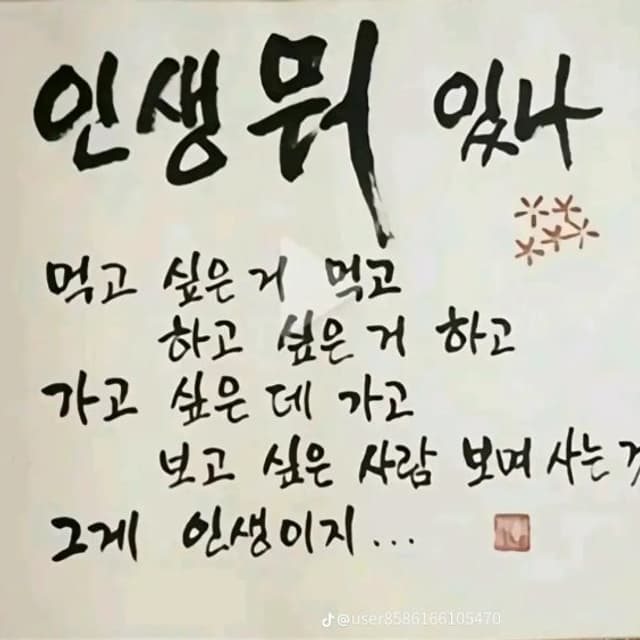 인생 뭐 있나
먹고 싶은 거 먹고
하고 싶은 거 하고
가고 싶은 데 가고
보고 싶은 사람 보며 사는 거
그게 인생이지...
@user8586166105470